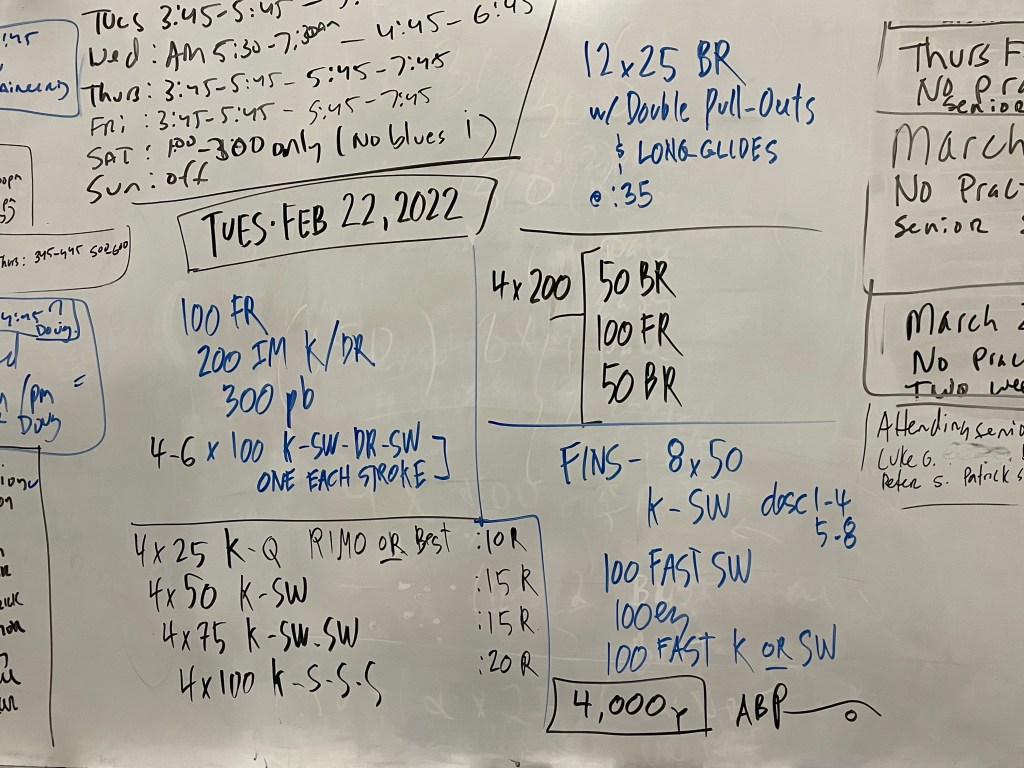 :45
Tues 3:45-5:45 -
Wed: AM 5:30-7:30am - 4:45-6:45
Thurs: 3:45-5:45 - 5:45-7:45
Fri: 3:45-5:45 - 5:45-7:45
SAT: 100-300 only (No blues !)
Sun: off
Thurs: 345-445 500-600
4:45
Doug.
/pm =
Doug
TUES. FEB 22, 2022
100 FR
200 IM K/DR
300 pb
4-6 x 100 K-SW-DR-SW
ONE EACH STROKE
4x25 K-Q RIMO OR Best :10R
4x50 K-SW :15R
4x75 K-SW-SW :15R
4x100 K-S-S-S :20R
12x25 BR
w/ Double Pull-Outs
& LONG GLIDES
@ :35
4x200
50 BR
100 FR
50 BR
FINS- 8x50
K-SW desc 1-4
5-8
100 FAST SW
100 ez
100 FAST K OR SW
4,000y ABP
Thurs F
No Pra
Senior
March
No Pract
Senior S
March 2
No Prac
Two wee
Attending senio
Luke G.
Peter S. Patrick S